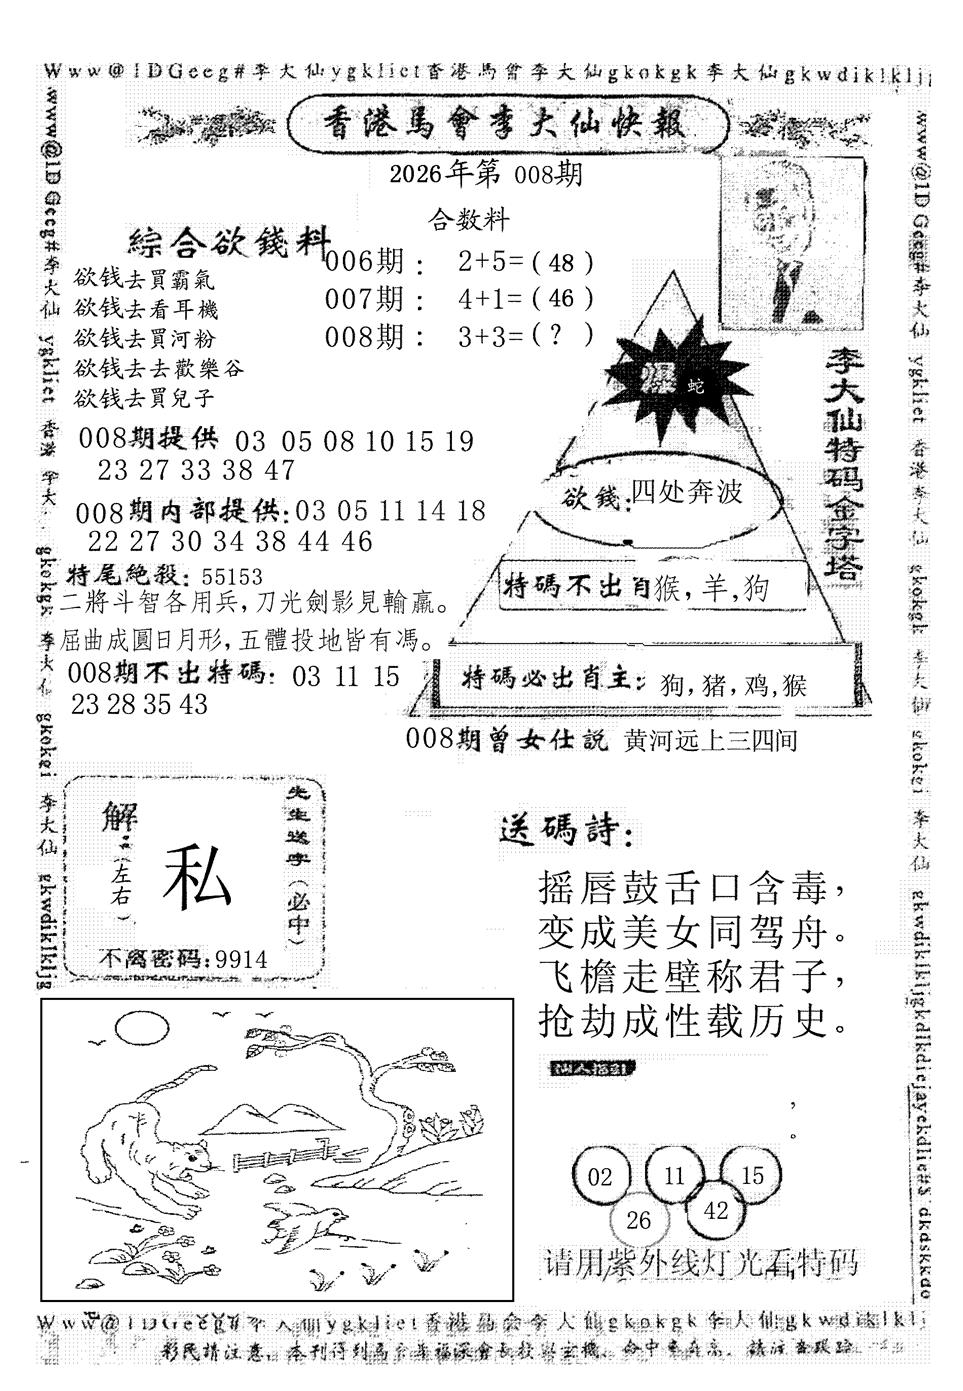 Www@1DGeeg#李大仙ygkliet香港馬會李大仙gkokgk李大仙gkwdiklklj
香港馬會李大仙快報
2026年第 008期
合数料
綜合欲錢料
欲钱去買霸氣
欲钱去看耳機
欲钱去買河粉
欲钱去去歡樂谷
欲钱去買兒子
006期： 2+5=( 48 )
007期： 4+1=( 46 )
008期： 3+3=( ? )
008期提供 03 05 08 10 15 19
23 27 33 38 47
008期内部提供:03 05 11 14 18
22 27 30 34 38 44 46
特尾絶殺: 55153
二將斗智各用兵,刀光劍影見輸贏。
屈曲成圓日月形,五體投地皆有馮。
008期不出特碼: 03 11 15
23 28 35 43
爆 蛇
欲錢:四处奔波
特碼不出肖猴,羊,狗
特碼必出肖主: 狗,猪,鸡,猴
李大仙特码金字塔
008期曾女仕説 黄河远上三四间
解:(左右)
私
先生送字(必中)
不离密码:9914
送碼詩:
摇唇鼓舌口含毒，
变成美女同驾舟。
飞檐走壁称君子，
抢劫成性载历史。
，
。
02 11 15
26 42
请用紫外线灯光看特码
www@1DGeeg#李大仙 ygkliet 香港 李大 gkokgk 李大仙 gkokei 李大仙 gkwdiklkljg